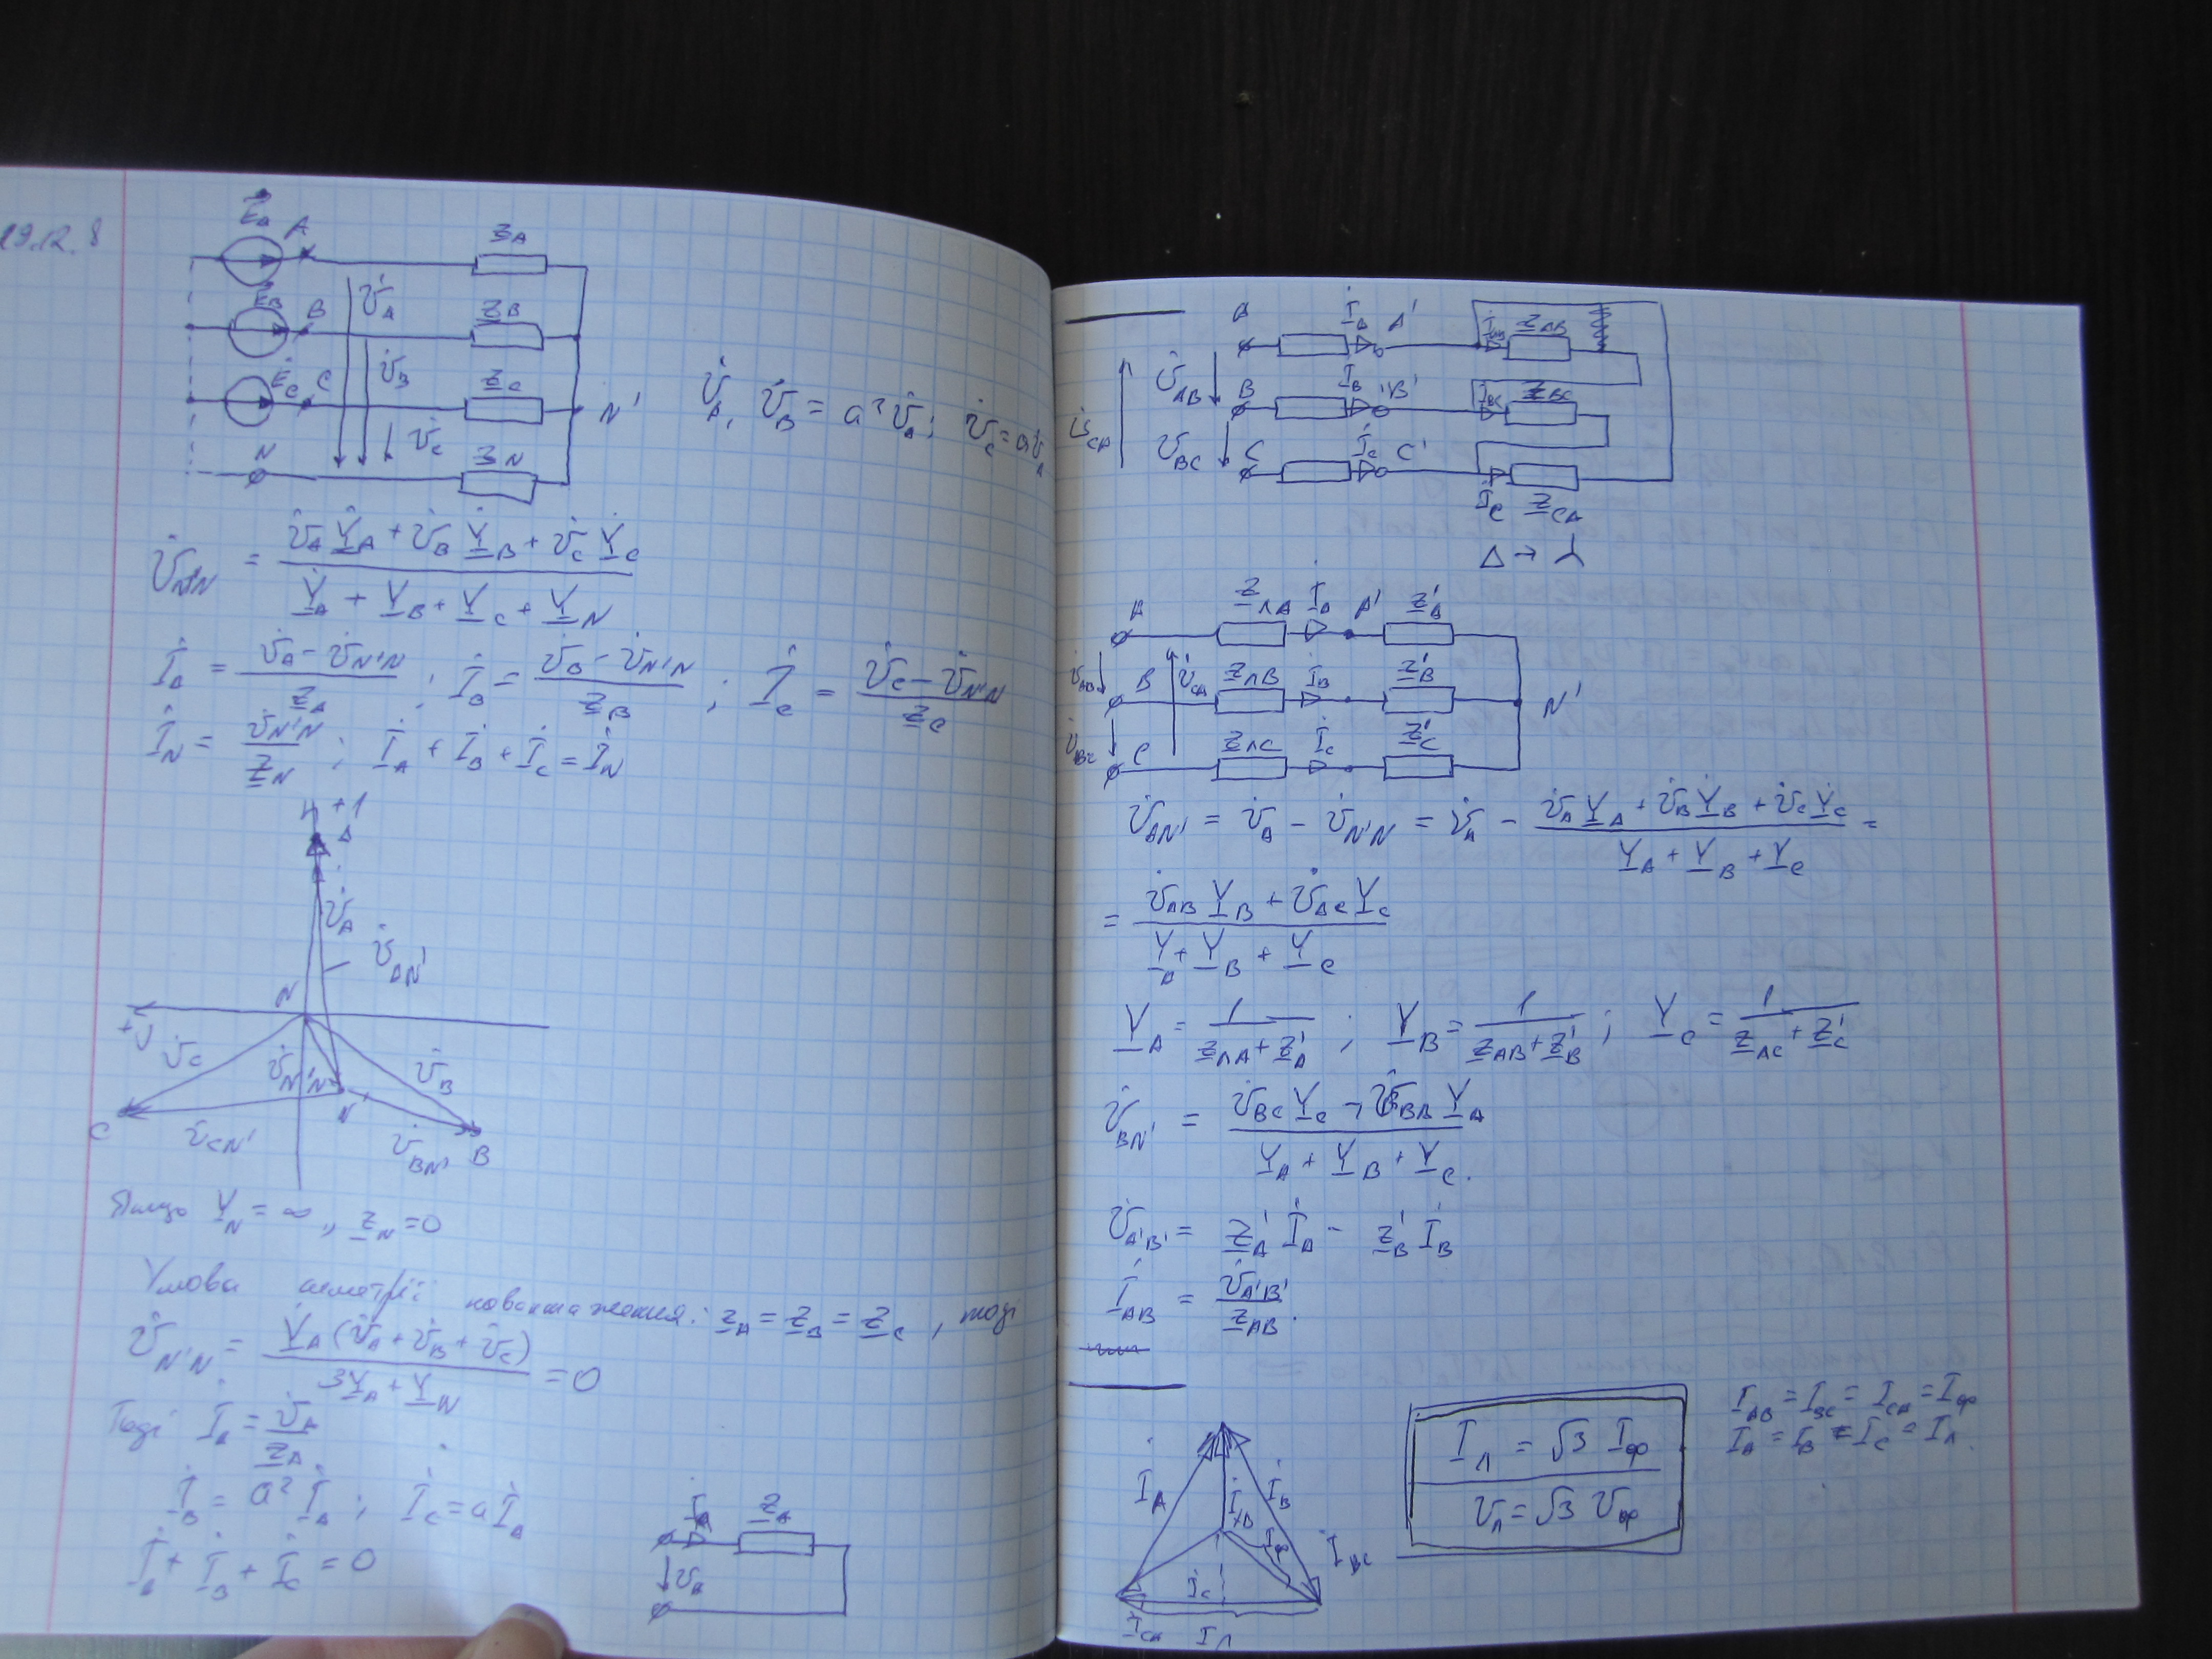 19.12.8
Ė_A A Z_A
Ė_B B U̇_A Z_B
Ė_C C U̇_B Z_C N'
N U̇_C Z_N
U̇_A, U̇_B = a² U̇_A; U̇_C = aU̇_A
U̇_N'N = (U̇_A Y_A + U̇_B Y_B + U̇_C Y_C) / (Y_A + Y_B + Y_C + Y_N)
İ_A = (U̇_A − U̇_N'N) / Z_A ; İ_B = (U̇_B − U̇_N'N) / Z_B ; İ_C = (U̇_C − U̇_N'N) / Z_C
İ_N = U̇_N'N / Z_N ; İ_A + İ_B + İ_C = İ_N
+1
A
U̇_A
U̇_AN'
N
+j
U̇_C U̇_N'N U̇_B
N'
C U̇_CN' U̇_BN' B
Якщо Y_N = ∞, Z_N = 0
Умова симетрії навантаження: Z_A = Z_B = Z_C, тоді
U̇_N'N = Y_A (U̇_A + U̇_B + U̇_C) / (3Y_A + Y_N) = 0
Тоді İ_A = U̇_A / Z_A
İ_B = a² İ_A ; İ_C = a İ_A
İ_A + İ_B + İ_C = 0
İ_A Z_A
U̇_A
A İ_A A' İ_AB Z_AB
U̇_AB B İ_B B' İ_BC Z_BC
U̇_CA
U̇_BC C İ_C C'
İ_C Z_CA
Δ → ⅄
A Z_ЛA İ_A A' Z'_A
U̇_AB B U̇_CA Z_ЛB İ_B Z'_B N'
U̇_BC C Z_ЛC İ_C Z'_C
U̇_AN' = U̇_A − U̇_N'N = U̇_A − (U̇_A Y_A + U̇_B Y_B + U̇_C Y_C) / (Y_A + Y_B + Y_C) =
= (U̇_AB Y_B + U̇_AC Y_C) / (Y_A + Y_B + Y_C)
Y_A = 1 / (Z_ЛA + Z'_A) ; Y_B = 1 / (Z_ЛB + Z'_B) ; Y_C = 1 / (Z_ЛC + Z'_C)
U̇_BN' = (U̇_BC Y_C − U̇_BA Y_A) / (Y_A + Y_B + Y_C).
U̇_A'B' = Z'_A İ_A − Z'_B İ_B
İ_AB = U̇_A'B' / Z_AB.
İ_A İ_AB İ_B
I_ф İ_BC
İ_C
İ_CA I_Л
I_Л = √3 I_ф
U_Л = √3 U_ф
I_AB = I_BC = I_CA = I_ф
I_A = I_B = I_C = I_Л.